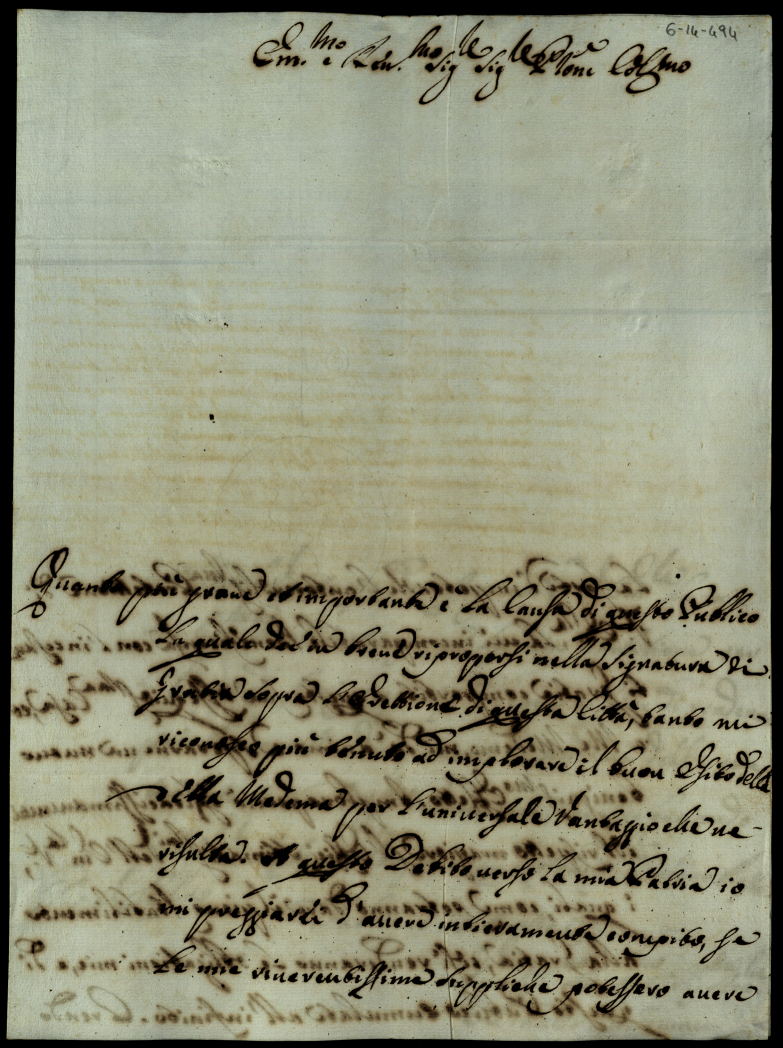 6-14-494
Em.mo e Rev.mo Sig.re Sig.re P.rone Col.mo
Quanto più grave et importante è la Causa di questo Publico
la quale dovrà in breve riproporsi nella Signatura di
Gratia sopra l'Erettione di questa Città, tanto mi
riconosco più tenuto ad implorare il buon Esito della
Medema per l'universale Vantaggio che ne
risulta. A questo Debito verso la mia Patria io
mi preggiarei d'avere intieramente compito, se
le mie riverentissime suppliche potessero avere